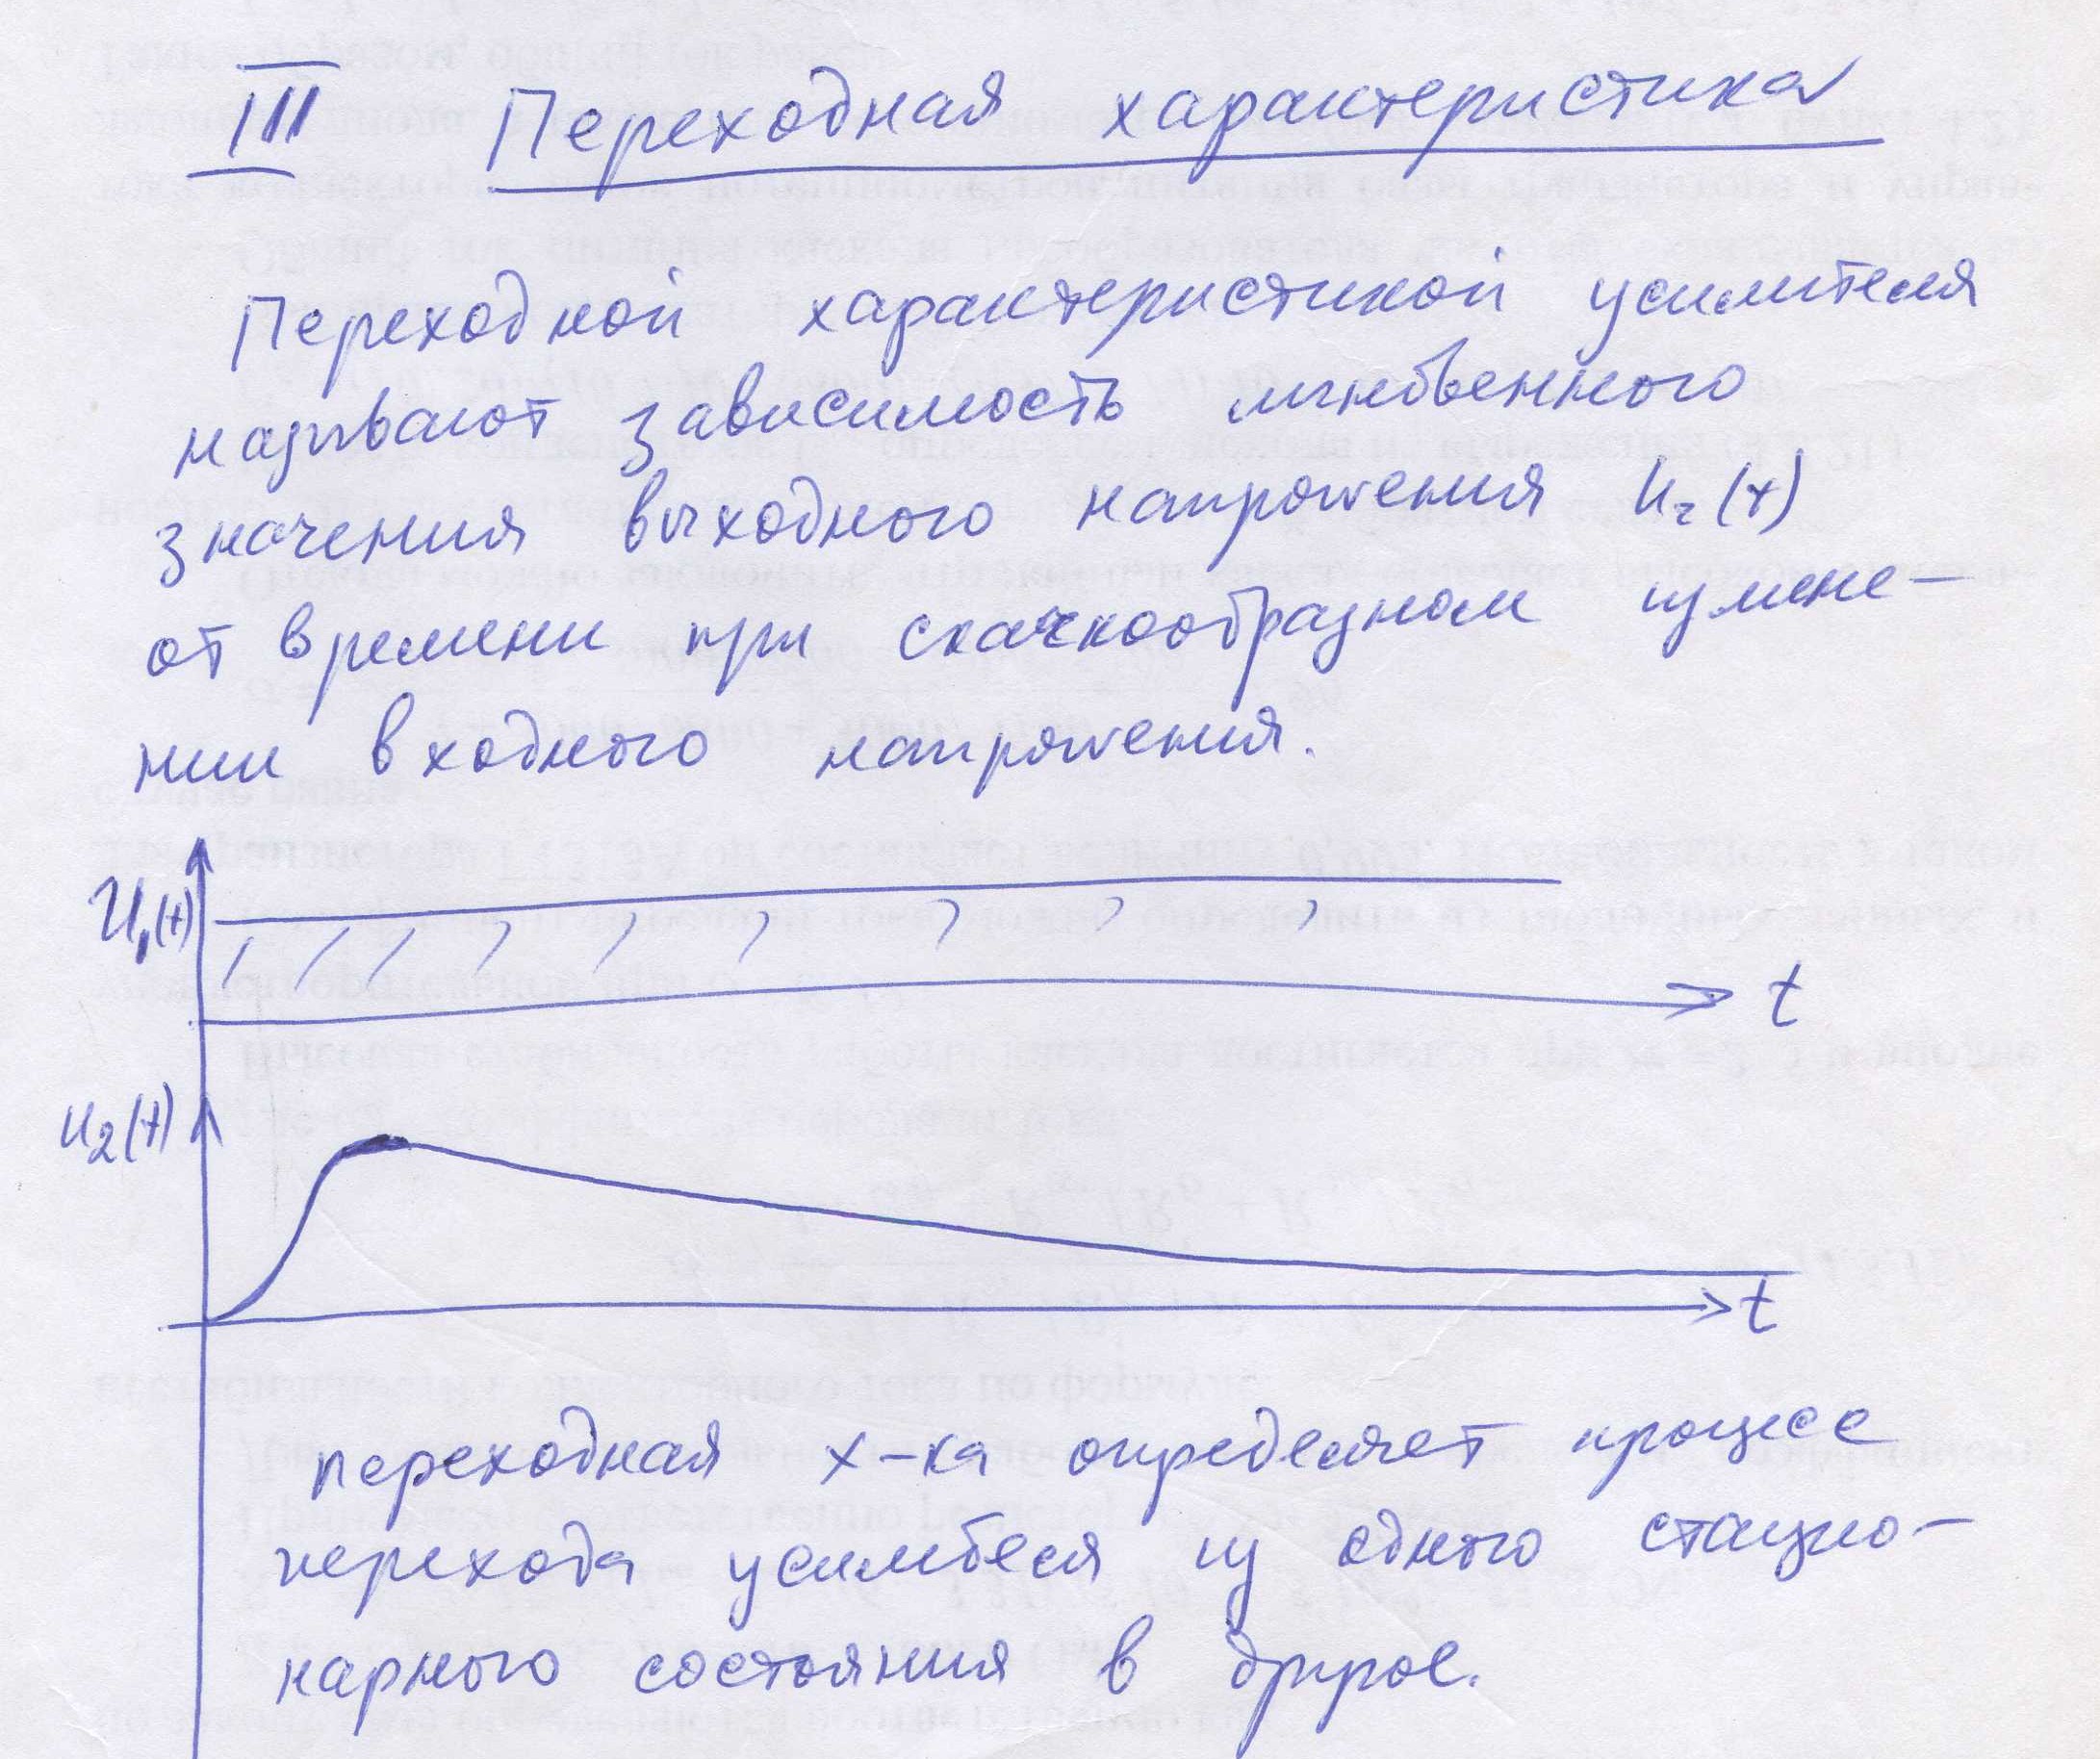 III Переходная характеристика
Переходной характеристикой усилителя
называют зависимость мгновенного
значения выходного напряжения u₂(t)
от времени при скачкообразном измене-
нии входного напряжения.
U₁(t)
t
u₂(t)
t
переходная х-ка определяет процесс
перехода усилителя из одного стацио-
нарного состояния в другое.